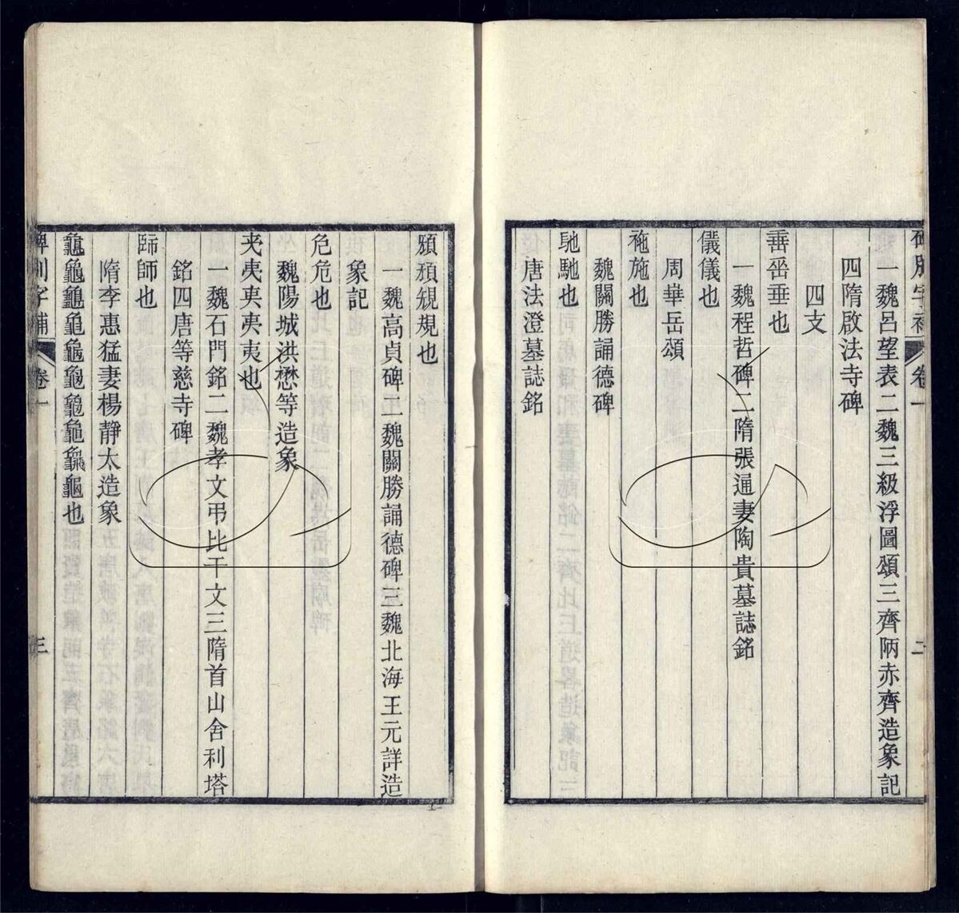 碑別字補 卷一 二
一魏呂望表二魏三級浮圖頌三齊陃赤齊造象記
四隋啟法寺碑
四支
垂也
一魏程哲碑二隋張通妻陶貴墓誌銘
儀儀也
周華岳頌
施也
魏關勝誦德碑
馳馳也
唐法澄墓誌銘
規也
一魏高貞碑二魏關勝誦德碑三魏北海王元詳造
象記
危危也
魏陽城洪懋等造象
夷也
一魏石門銘二魏孝文弔比干文三隋首山舍利塔
銘四唐等慈寺碑
師也
隋李惠猛妻楊靜太造象
龜也
碑別字補 卷一 三